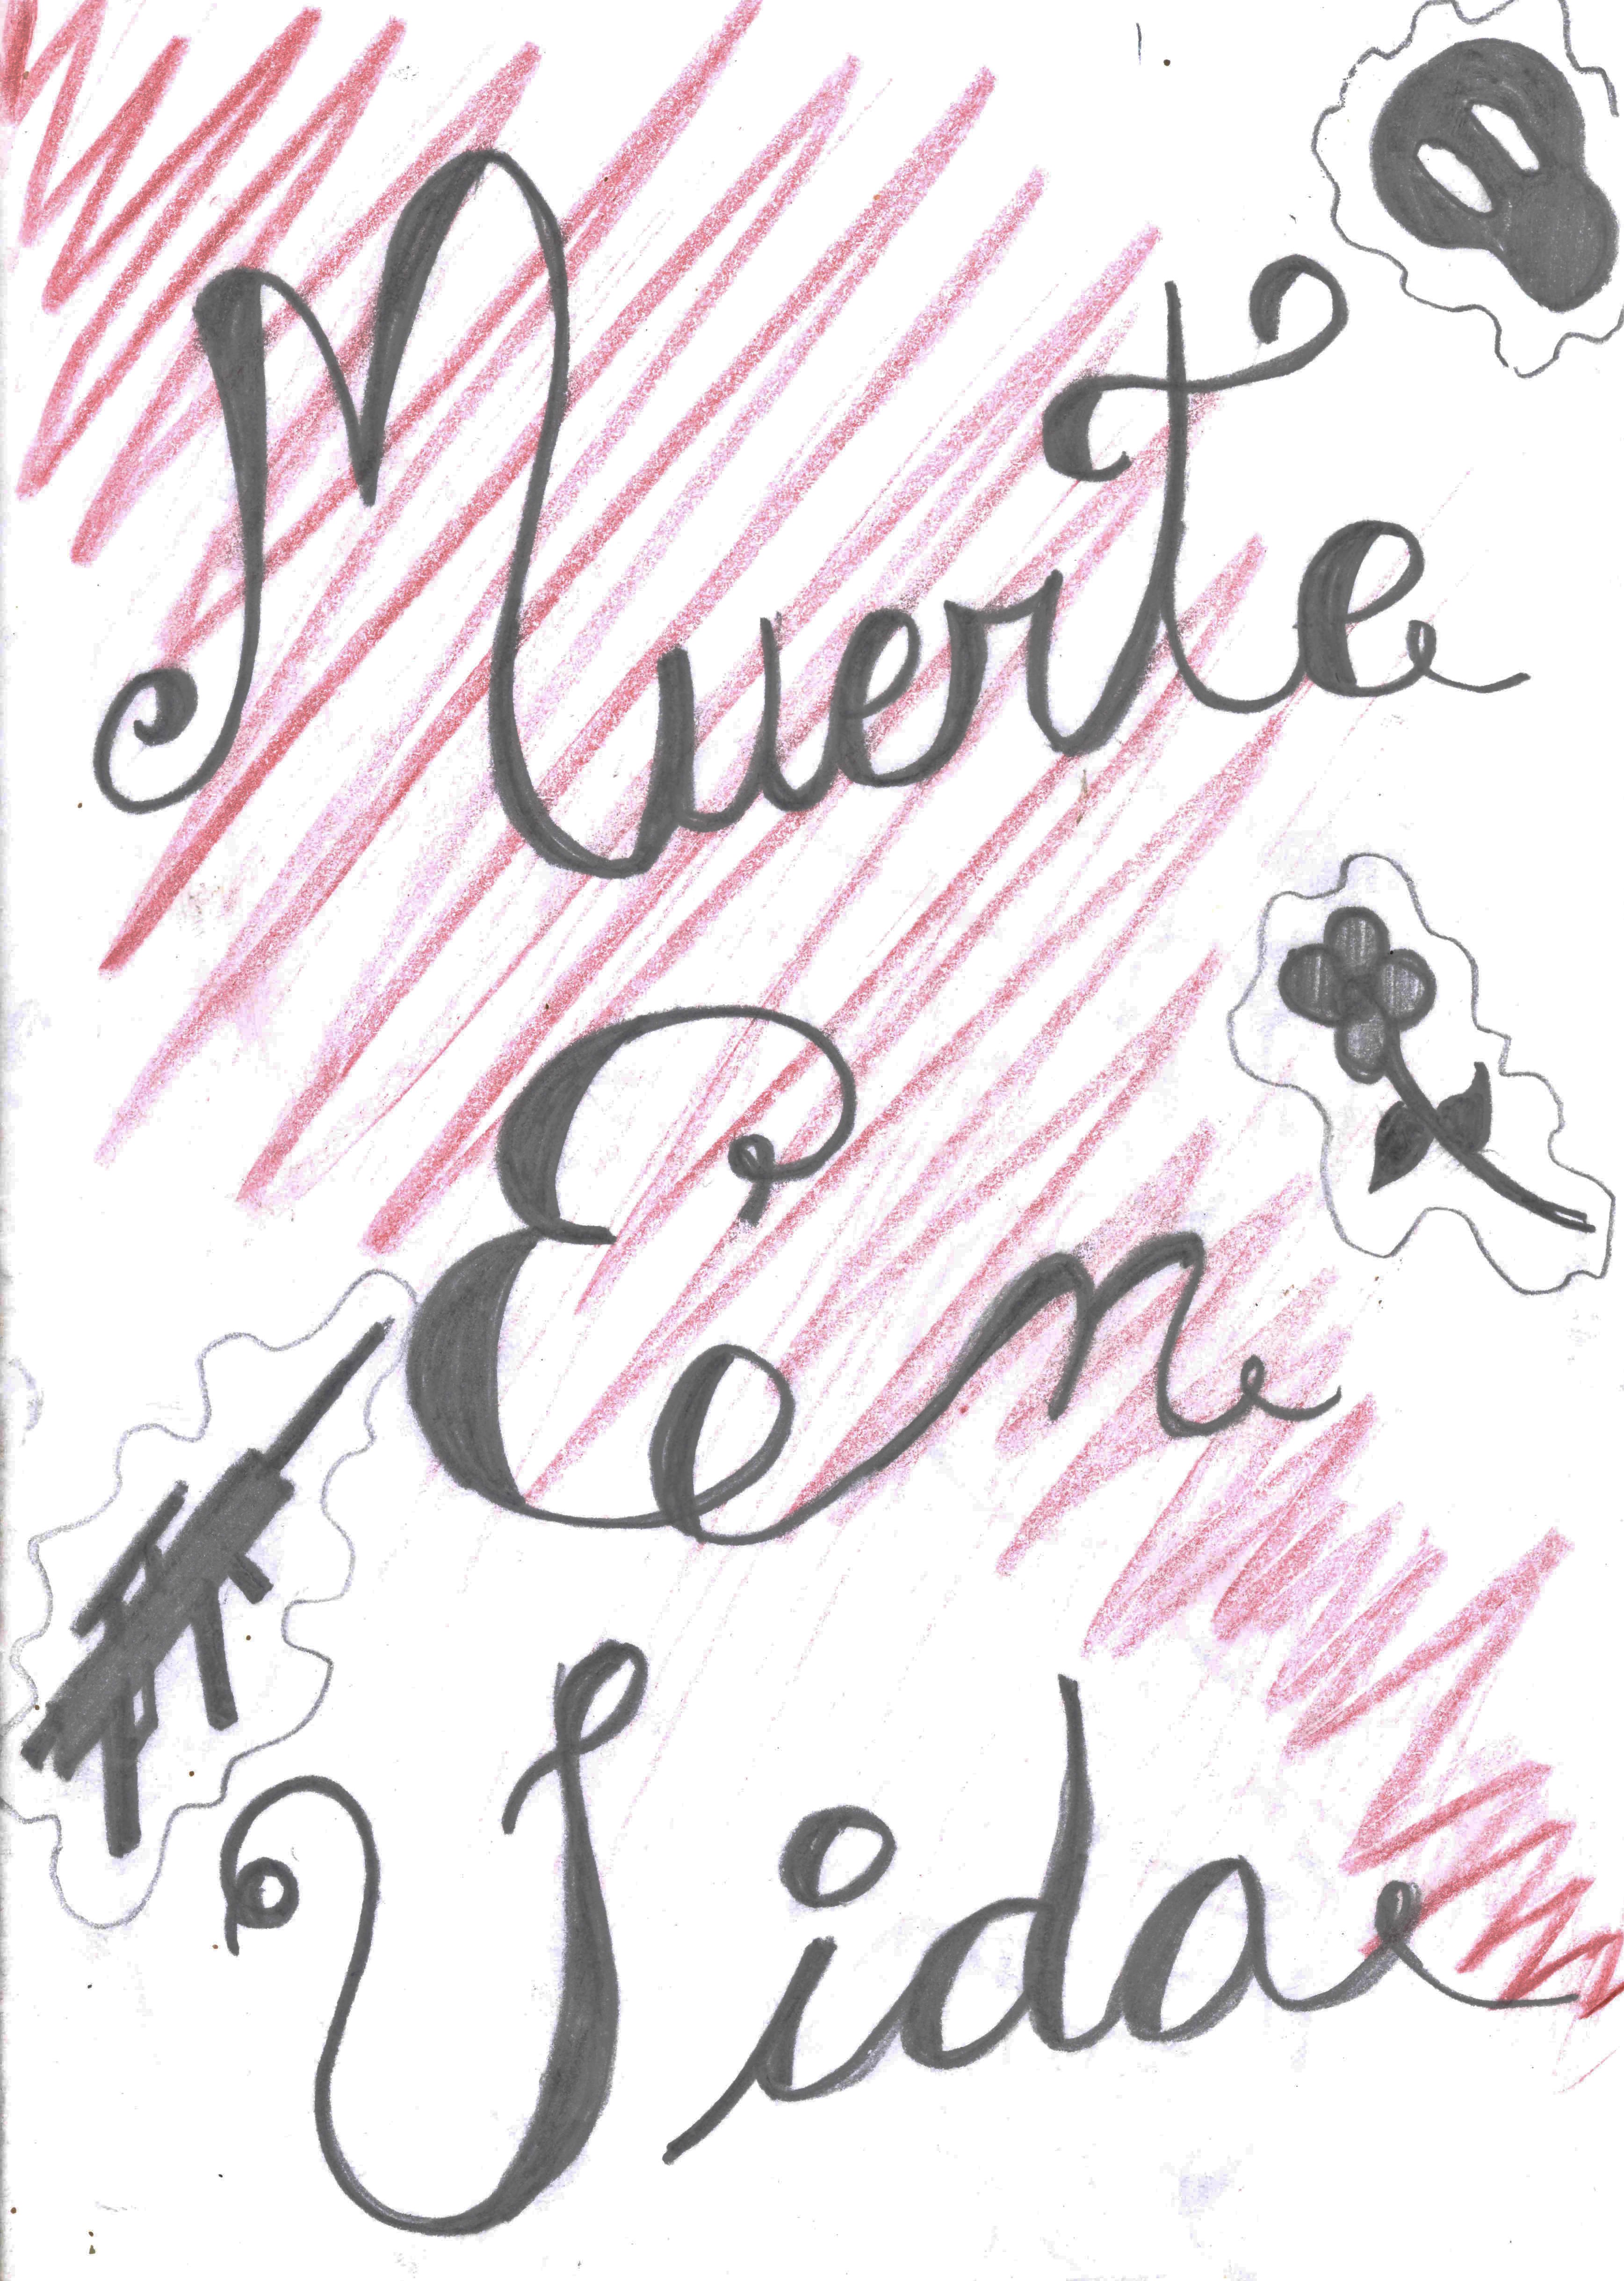 Muerte
En
Vida